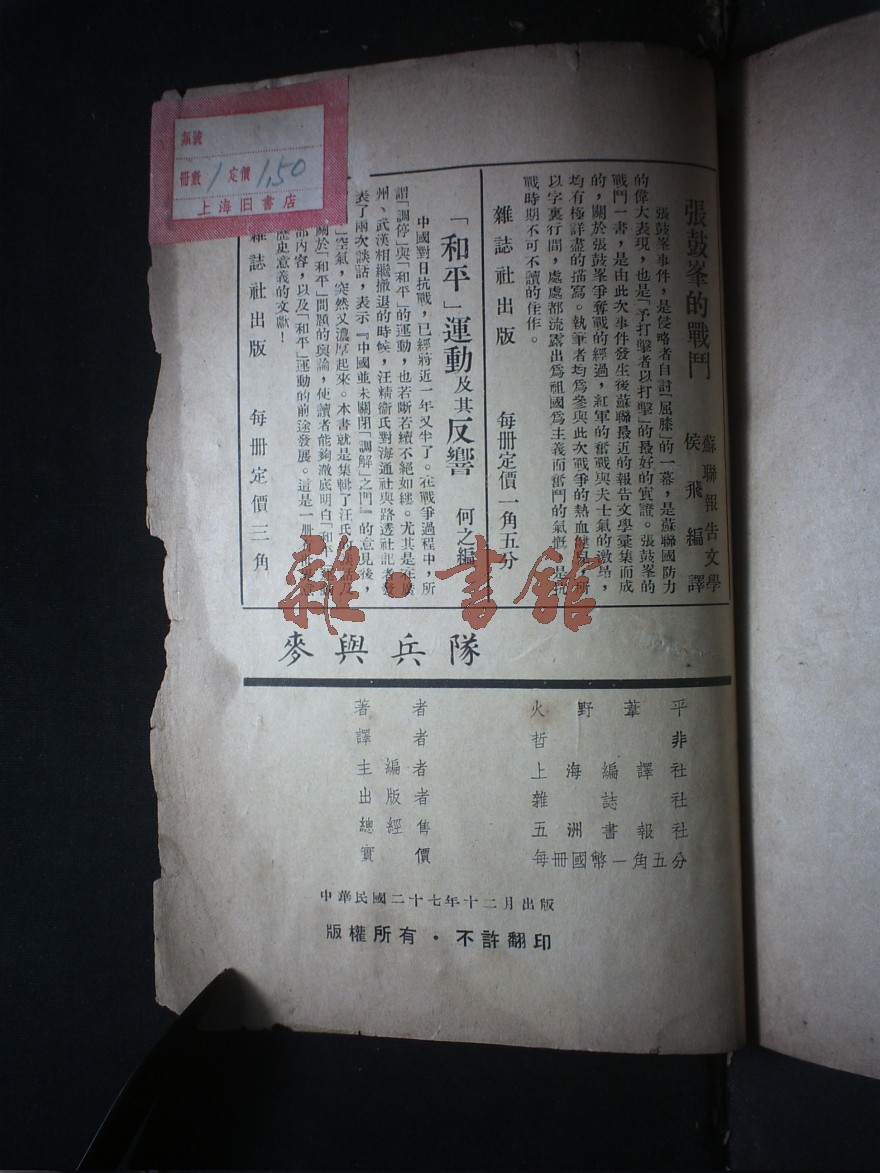 類號
冊數 1 定價 1.50
上海旧書店
張鼓峯的戰鬥 蘇聯報告文學
侯飛編譯
張鼓峯事件,是侵略者自討「屈膝」的一幕,是蘇聯國防力
的偉大表現,也是「予打擊者以打擊」的最好的實證。張鼓峯的
戰鬥一書,是由此次事件發生後蘇聯最近的報告文學彙集而成
的,關於張鼓峯爭奪戰的經過,紅軍的奮戰與夫士氣的激昂,
均有極詳盡的描寫。執筆者均爲參與此次戰爭的熱血
以字裏行間,處處都流露出爲祖國爲主義而奮鬥的氣慨,是抗
戰時期不可不讀的佳作。
雜誌社出版 每冊定價一角五分
「和平」運動及其反響 何之編
中國對日抗戰,已經將近一年又半了。在戰爭過程中,所
謂「調停」與「和平」的運動,也若斷若續不絕如縷。尤其是在廣
州、武漢相繼撤退的時候,汪精衞氏對海通社與路透社記者發
表了兩次談話,表示『中國並未關閉「調解」之門』的意見後,
」空氣,突然又濃厚起來。本書就是集輯了汪氏
關於「和平」問題的輿論,使讀者能夠澈底明白「和平」
部內容,以及「和平」運動的前途發展。這是一冊
歷史意義的文獻!
雜誌社出版 每冊定價三角
雜·書館
麥與兵隊
著者 火野葦平
譯者 哲非
主編者 上海編譯社
出版者 雜誌社
總經售 五洲書報社
實價 每冊國幣一角五分
中華民國二十七年十二月出版
版權所有·不許翻印